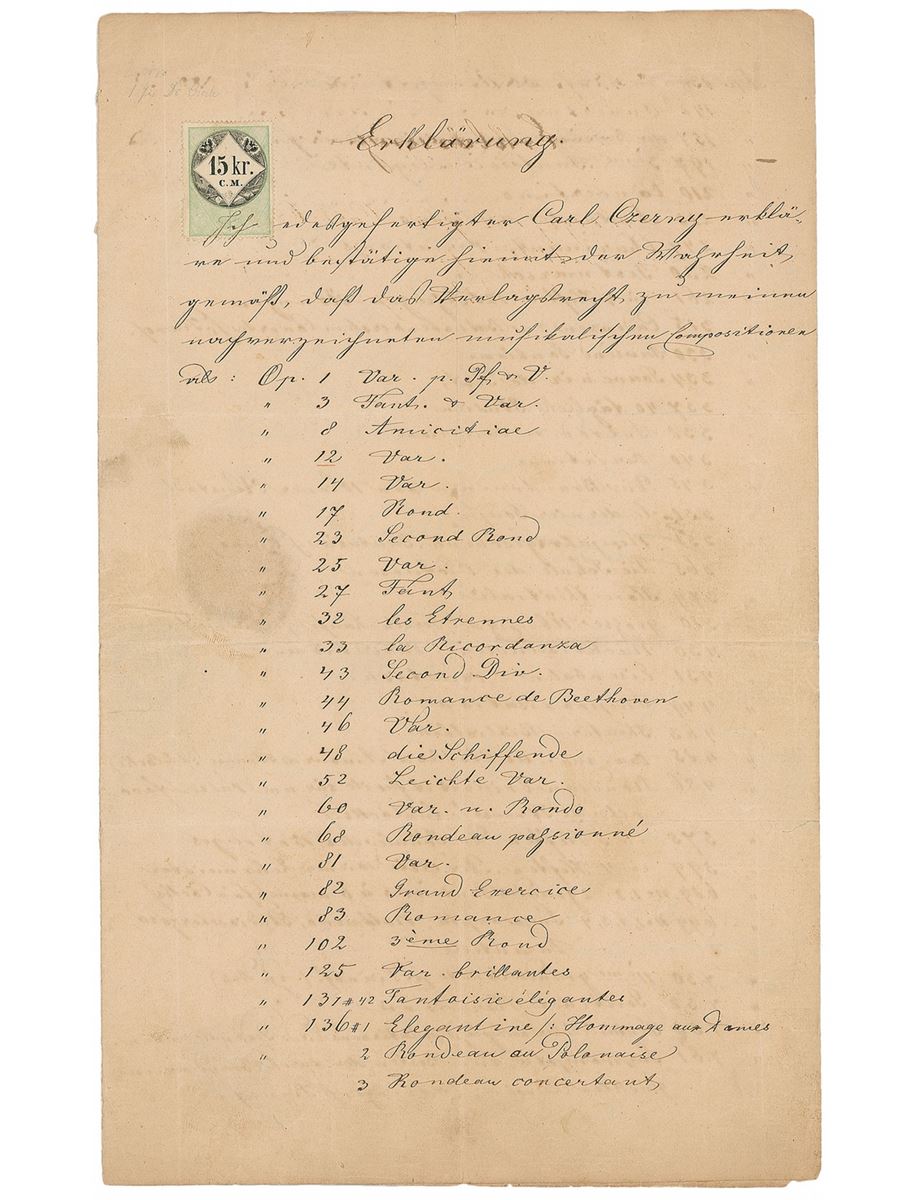 Erklärung.
15 kr.
C. M.
Ich Edesgefertigter Carl Czerny erklä-
re und bestätige hiemit der Wahrheit
gemäß, daß das Verlagsrecht zu meinen
nachverzeichneten musikalischen Compositionen
als: Op. 1 Var. p. Pf & V.
" 3 Fant. & Var.
" 8 Amicitiae
" 12 Var.
" 14 Var.
" 17 Rond.
" 23 Second Rond
" 25 Var.
" 27 Fant
" 32 les Etrennes
" 33 la Ricordanza
" 43 Second Div.
" 44 Romance de Beethoven
" 46 Var.
" 48 die Schiffende
" 52 Leichte Var.
" 60 Var. u. Rondo
" 68 Rondeau passionné
" 81 Var.
" 82 Grand Exercice
" 83 Romance
" 102 3ème Rond
" 125 Var. brillantes
" 131 Fantoisie élégantes
" 136 #1 Elegantine /: Hommage aux Dames
" 2 Rondeau au Polonaise
3 Rondeau concertant